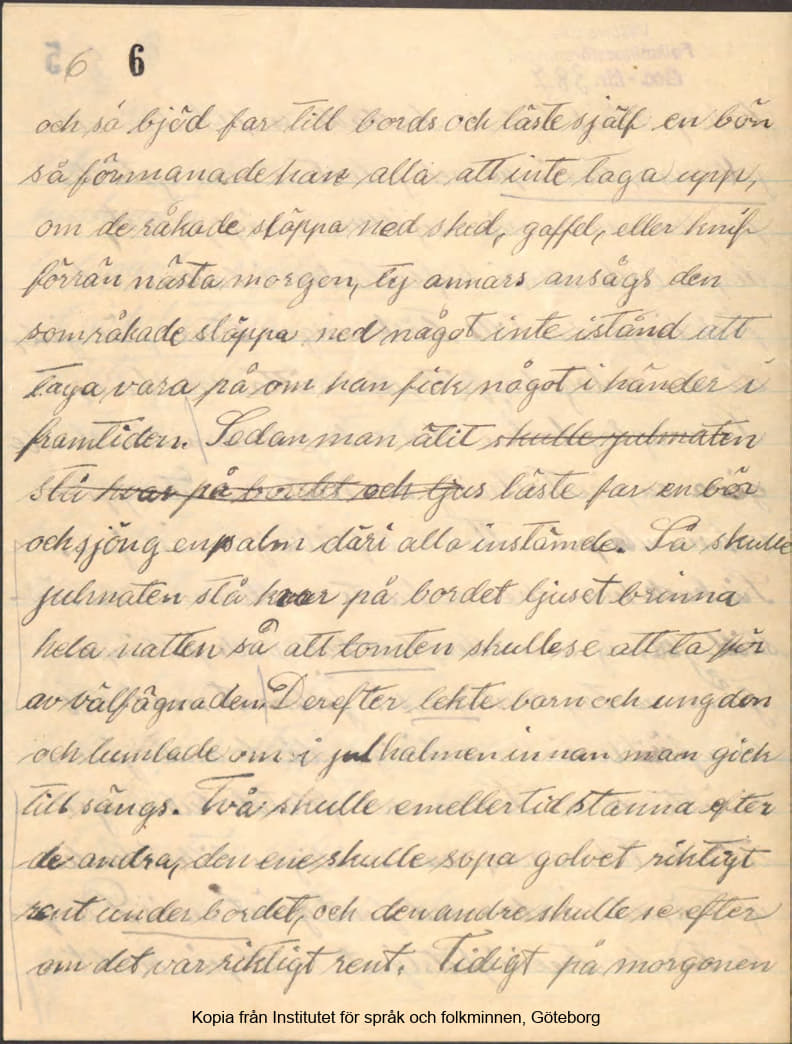 6 6
och så bjöd far till bords och läste själf en bön
så förmanade han alla att inte taga upp,
om de råkade släppa ned sked, gaffel, eller knif
förrän nästa morgon, ty annars ansågs den
som råkade släppa ned något inte istånd att
taga vara på om han fick något i händer i
framtiden. Sedan man ätit skulle julmaten
stå kvar på bordet och ljus läste far en bön
och sjöng en psalm däri alla instämde. Så skulle
julmaten stå kvar på bordet ljuset brinna
hela natten så att tomten skulle se att ta för
av välfägnaden. Derefter lekte barn och ungdom
och tumlade om i julhalmen innan man gick
till sängs. Två skulle emellertid stanna efter
de andra, den ene skulle sopa golvet riktigt
rent under bordet, och den andre skulle se efter
om det var riktigt rent. Tidigt på morgonen
Kopia från Institutet för språk och folkminnen, Göteborg